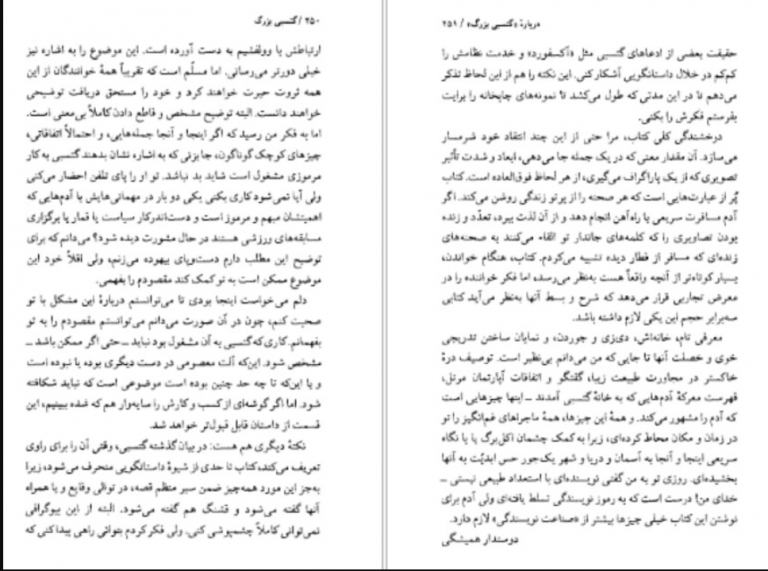 ۲۵۰ / گتسبی بزرگ
ارتباطش یا وولفشیم به دست آورده است. این موضوع را به اشاره نیز
خیلی دورتر می‌رسانی. اما مسلّم است که تقریباً همهٔ خوانندگان از این
همه ثروت حیرت خواهند کرد و خود را مستحق دریافت توضیحی
خواهند دانست. البته توضیح مشخص و قاطع دادن کاملاً بی‌معنی است.
اما به فکر من رسید که اگر اینجا و آنجا جمله‌هایی، و احتمالاً اتفاقاتی،
چیزهای کوچک گوناگون، جا بزنی که به اشاره نشان بدهند گتسبی به کار
مرموزی مشغول است شاید بد نباشد. تو او را پای تلفن احضار می‌کنی
ولی آیا نمی‌شود کاری بکنی یکی دو بار در مهمانی‌هایش با آدم‌هایی که
اهمیتشان مبهم و مرموز است و دست‌اندرکار سیاست یا قمار یا برگزاری
مسابقه‌های ورزشی هستند در حال مشورت دیده شود؟ می‌دانم که برای
توضیح این مطلب دارم دست‌وپای بیهوده می‌زنم، ولی اقلاً خود این
موضوع ممکن است به تو کمک کند مقصودم را بفهمی.
دلم می‌خواست اینجا بودی تا می‌توانستم دربارهٔ این مشکل با تو
صحبت کنم، چون در آن صورت می‌دانم می‌توانستم مقصودم را به تو
بفهمانم. کاری که گتسبی به آن مشغول بود نباید ــ حتی اگر ممکن باشد ــ
مشخص شود. این‌که آلت معصومی در دست دیگری بوده یا نبوده است
و یا این‌که تا چه حد چنین بوده است موضوعی است که نباید شکافته
شود. اما اگر گوشه‌ای از کسب و کارش را سایه‌وار هم که شده ببینیم، این
قسمت از داستان قابل قبول‌تر خواهد شد.
نکتهٔ دیگری هم هست: در بیان گذشته گتسبی، وقتی آن را برای راوی
تعریف می‌کند، کتاب تا حدی از شیوهٔ داستانگویی منحرف می‌شود، زیرا
به‌جز این مورد همه‌چیز ضمن سیر منظم قصه، در توالی وقایع و یا همراه
آنها گفته می‌شود و قشنگ هم گفته می‌شود. البته از این بیوگرافی
نمی‌توانی کاملاً چشمپوشی کنی. ولی فکر کردم بتوانی راهی پیدا کنی که
دربارهٔ «گتسبی بزرگ» / ۲۵۱
حقیقت بعضی از ادعاهای گتسبی مثل «آکسفورد» و خدمت نظامش را
کم‌کم در خلال داستانگویی آشکار کنی. این نکته را هم از این لحاظ تذکر
می‌دهم تا در این مدتی که طول می‌کشد تا نمونه‌های چاپخانه را برایت
بفرستم فکرش را بکنی.
درخشندگی کلی کتاب، مرا حتی از این چند انتقاد خود شرمسار
می‌سازد. آن مقدار معنی که در یک جمله جا می‌دهی، ابعاد و شدت تأثیر
تصویری که از یک پاراگراف می‌گیری، از هر لحاظ فوق‌العاده است. کتاب
پُر از عبارت‌هایی است که هر صحنه را از پرتو زندگی روشن می‌کند. اگر
آدم مسافرت سریعی با راه‌آهن انجام دهد و از آن لذت ببرد، تعدّد و زنده
بودن تصاویری را که کلمه‌های جاندار تو القاء می‌کنند به صحنه‌های
زنده‌ای که مسافر از قطار دیده تشبیه می‌کردم. کتاب، هنگام خواندن،
بسیار کوتاه‌تر از آنچه واقعاً هست به‌نظر می‌رسد، اما فکر خواننده را در
معرض تجاربی قرار می‌دهد که شرح و بسط آنها به‌نظر می‌آید کتابی
سه‌برابر حجم این یکی لازم داشته باشد.
معرفی تام، خانه‌اش، دی‌زی و جوردن، و نمایان ساختن تدریجی
خوی و خصلت آنها تا جایی که من می‌دانم بی‌نظیر است. توصیف درهٔ
خاکستر در مجاورت طبیعت زیبا، گفتگو و اتفاقات آپارتمان مرتل،
فهرست معرکهٔ آدم‌هایی که به خانهٔ گتسبی آمدند ــ اینها چیزهایی است
که آدم را مشهور می‌کند. و همهٔ این چیزها، همهٔ ماجراهای غم‌انگیز را تو
در زمان و مکان محاط کرده‌ای، زیرا به کمک چشمان اکل‌برگ یا با نگاه
سریعی اینجا و آنجا به آسمان و دریا و شهر یک‌جور حس ابدیّت به آنها
بخشیده‌ای. روزی تو به من گفتی نویسنده‌ای با استعداد طبیعی نیستی ــ
خدای من! درست است که به رموز نویسندگی تسلط یافته‌ای ولی آدم برای
نوشتن این کتاب خیلی چیزها بیشتر از «صناعت نویسندگی» لازم دارد.
دوستدار همیشگی